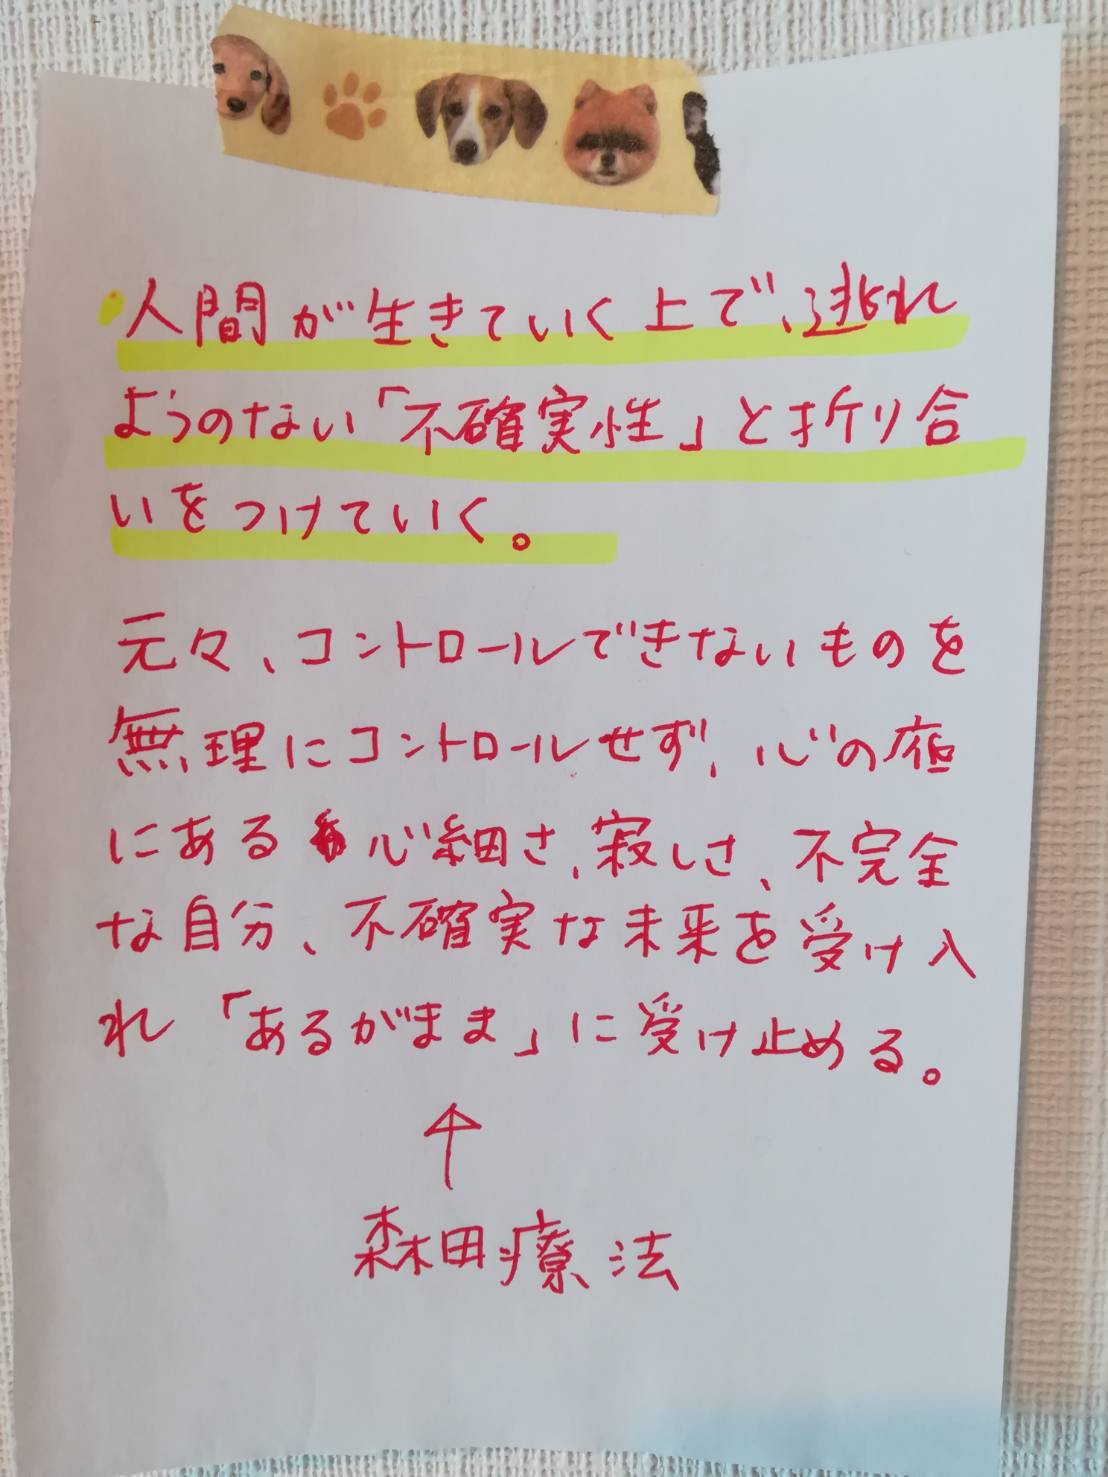 ・人間が生きていく上で、逃れ
ようのない「不確実性」と折り合
いをつけていく。
元々、コントロールできないものを
無理にコントロールせず、心の底
にある心細さ、寂しさ、不完全
な自分、不確実な未来を受け入
れ「あるがまま」に受け止める。
↑
森田療法